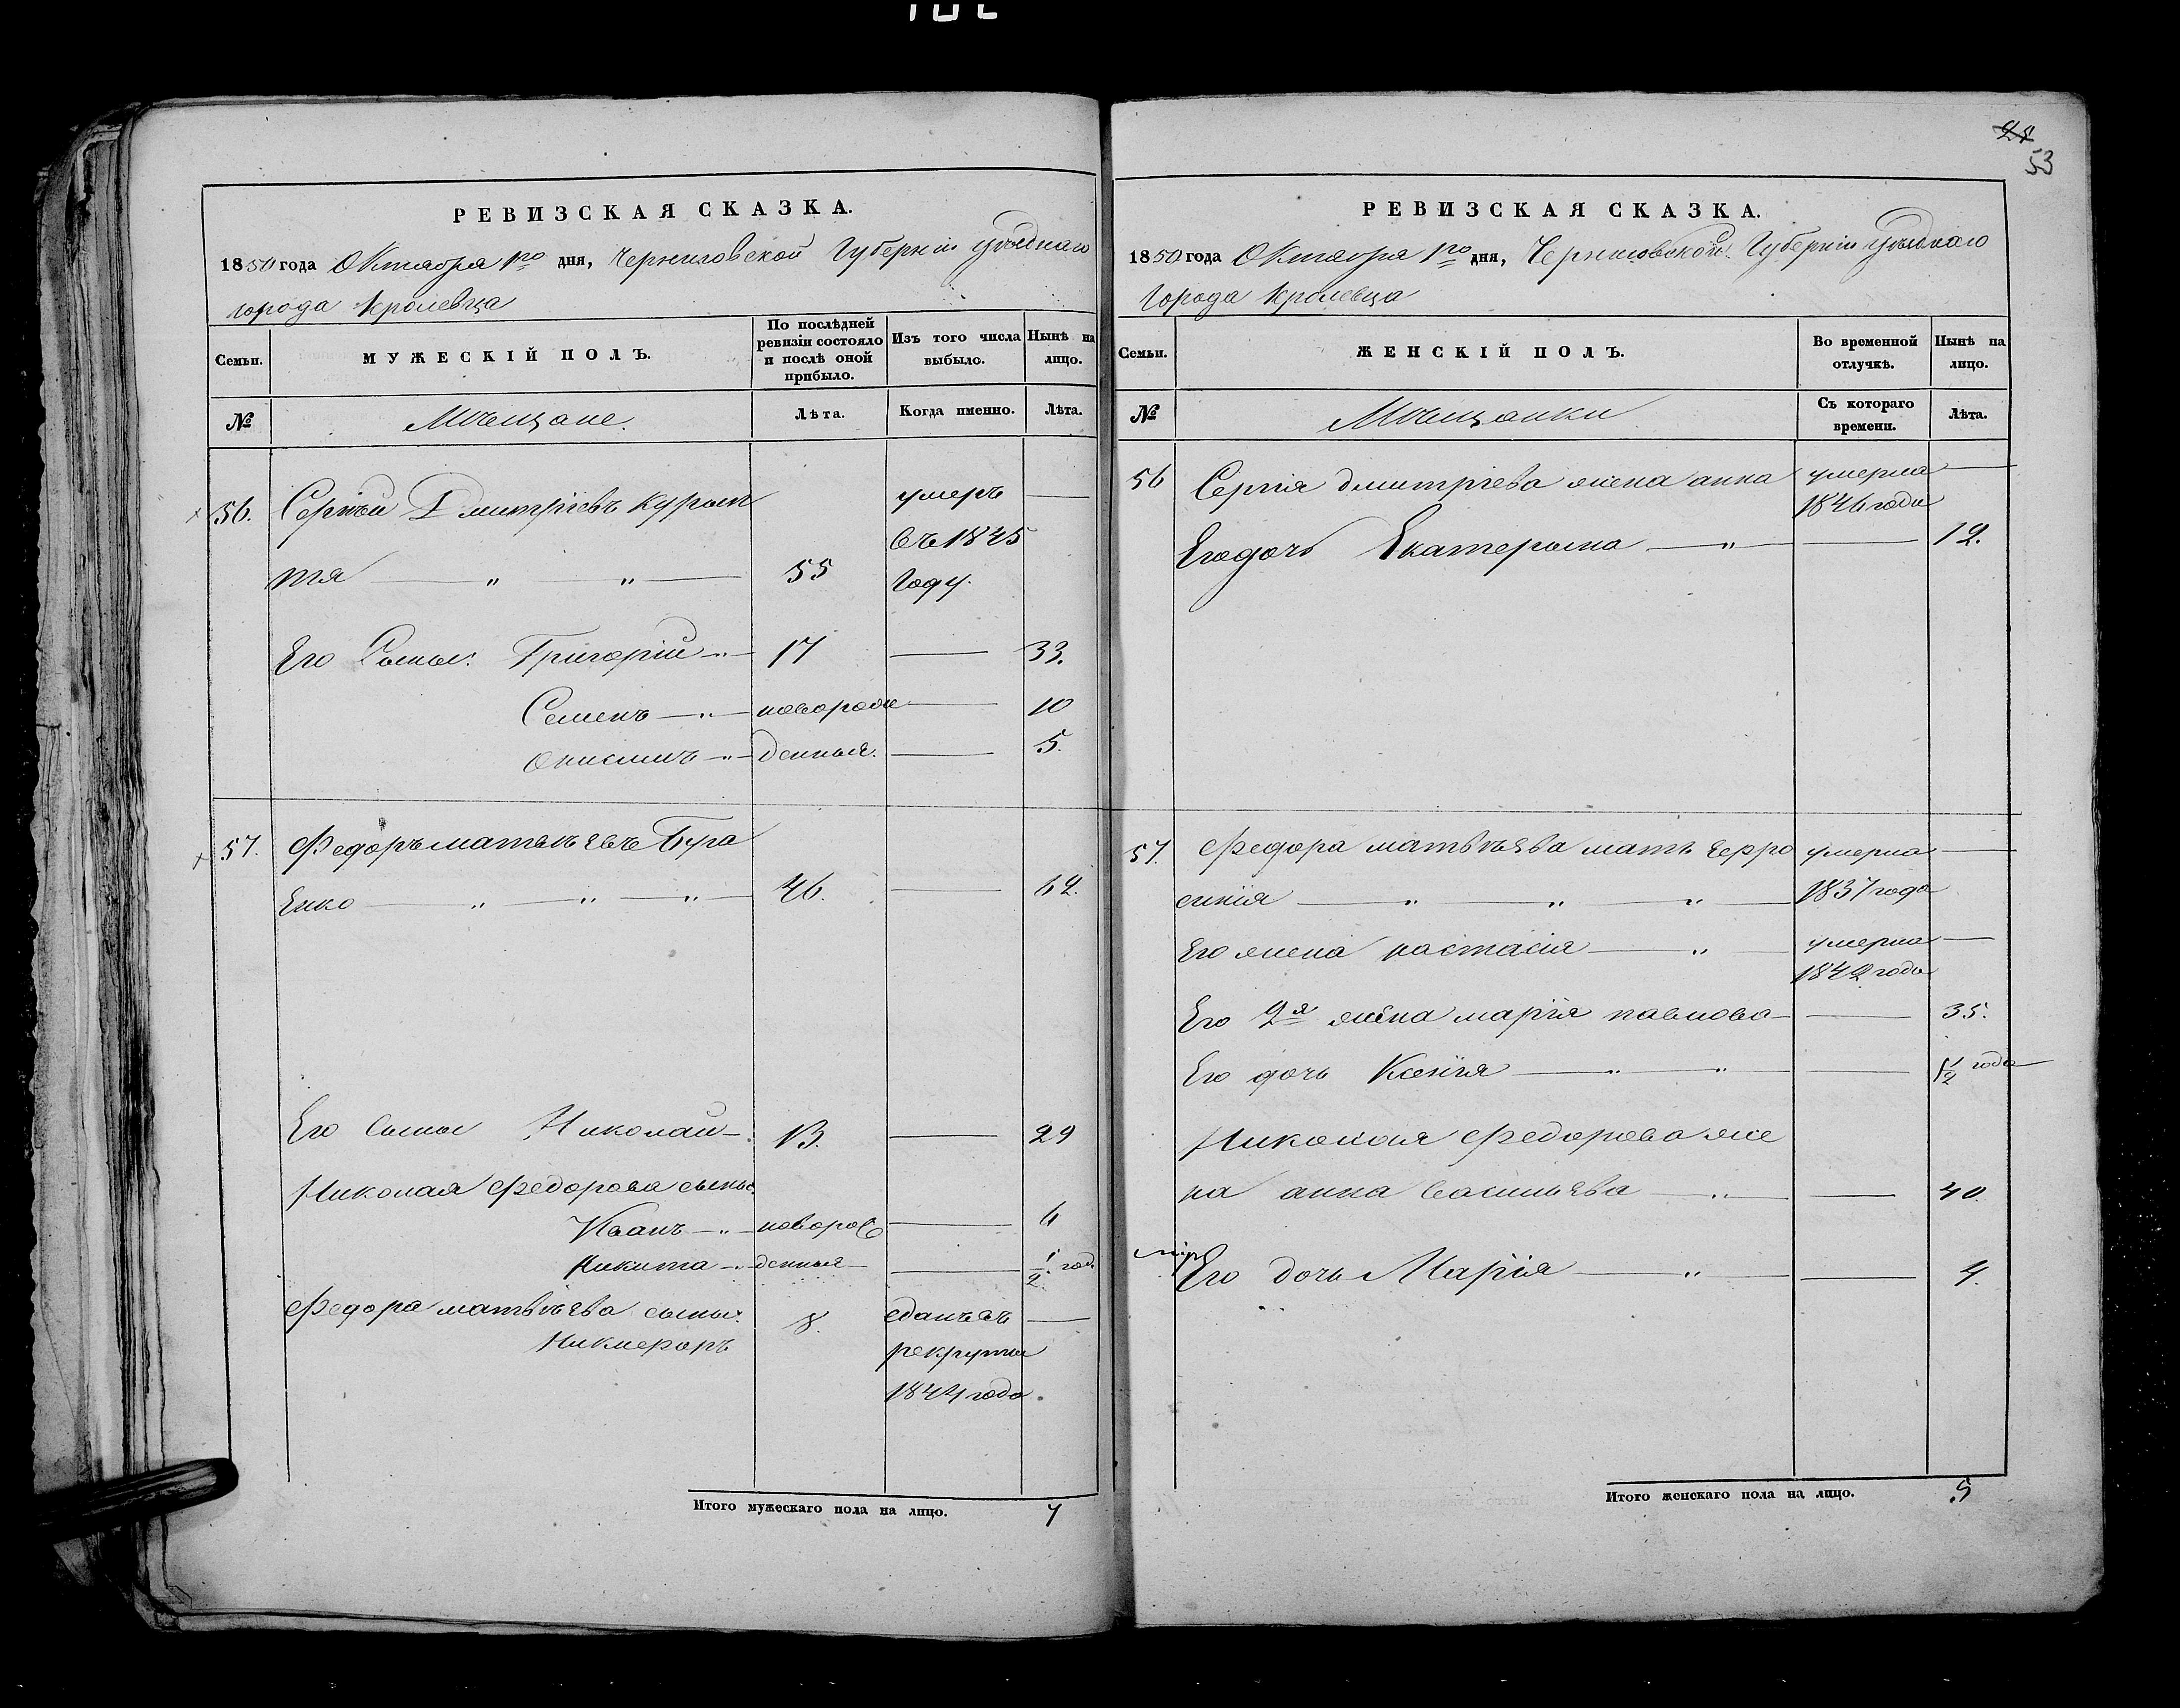 РЕВИЗСКАЯ СКАЗКА.
1850 года Октября 1го дня, Черниговской Губерніи уѣзднаго
города Кролевца
Семьи. МУЖЕСКІЙ ПОЛЪ. По послѣдней ревизіи состояло и послѣ оной прибыло. Изъ того числа выбыло. Нынѣ на лицо.
№ Мѣщане. Лѣта. Когда именно. Лѣта.
56. Сергѣй Дмитріевъ Курып умеръ —
въ 1845
тя — " " — 55 году.
Его Сыны: Григорій — 17 — 33.
Семенъ — новорож — 10
Онисимъ — денныя. — 5.
57. Федоръ матвѣевъ Буга
Енко — " " " — 46. — 62.
Его Сыны Николай — 13. — 29
Николая Федорова сыны
Иванъ — " — новорож — 6
Никита — денныя — 1/2 год.
Федора матвѣева сыны: 8. сданъ въ —
Никифоръ рекруты
1844 года.
Итого мужескаго пола на лицо. 7
24
53
РЕВИЗСКАЯ СКАЗКА.
1850 года Октября 1го дня, Черниговской Губерніи уѣзднаго
города Кролевца
Семьи. ЖЕНСКІЙ ПОЛЪ. Во временной отлучкѣ. Нынѣ на лицо.
№ Мѣщанки Съ котораго времени. Лѣта.
56 Сергія дмитріева жена анна умерла —
1846 года
Его дочь Екатерына — " — 12.
57. Федора матвѣева мать Ефро умерла —
синія — " " " — 1837 года
Его жена настасія — " — умерла —
1842 года
Его 2я жена марія павлова — 35.
Его дочь Ксенія — " " — 1/2 года
Николая Федорова же
на анна васильева — " — 40.
Его дочь Марія — " — 4.
Итого женскаго пола на лицо. 5